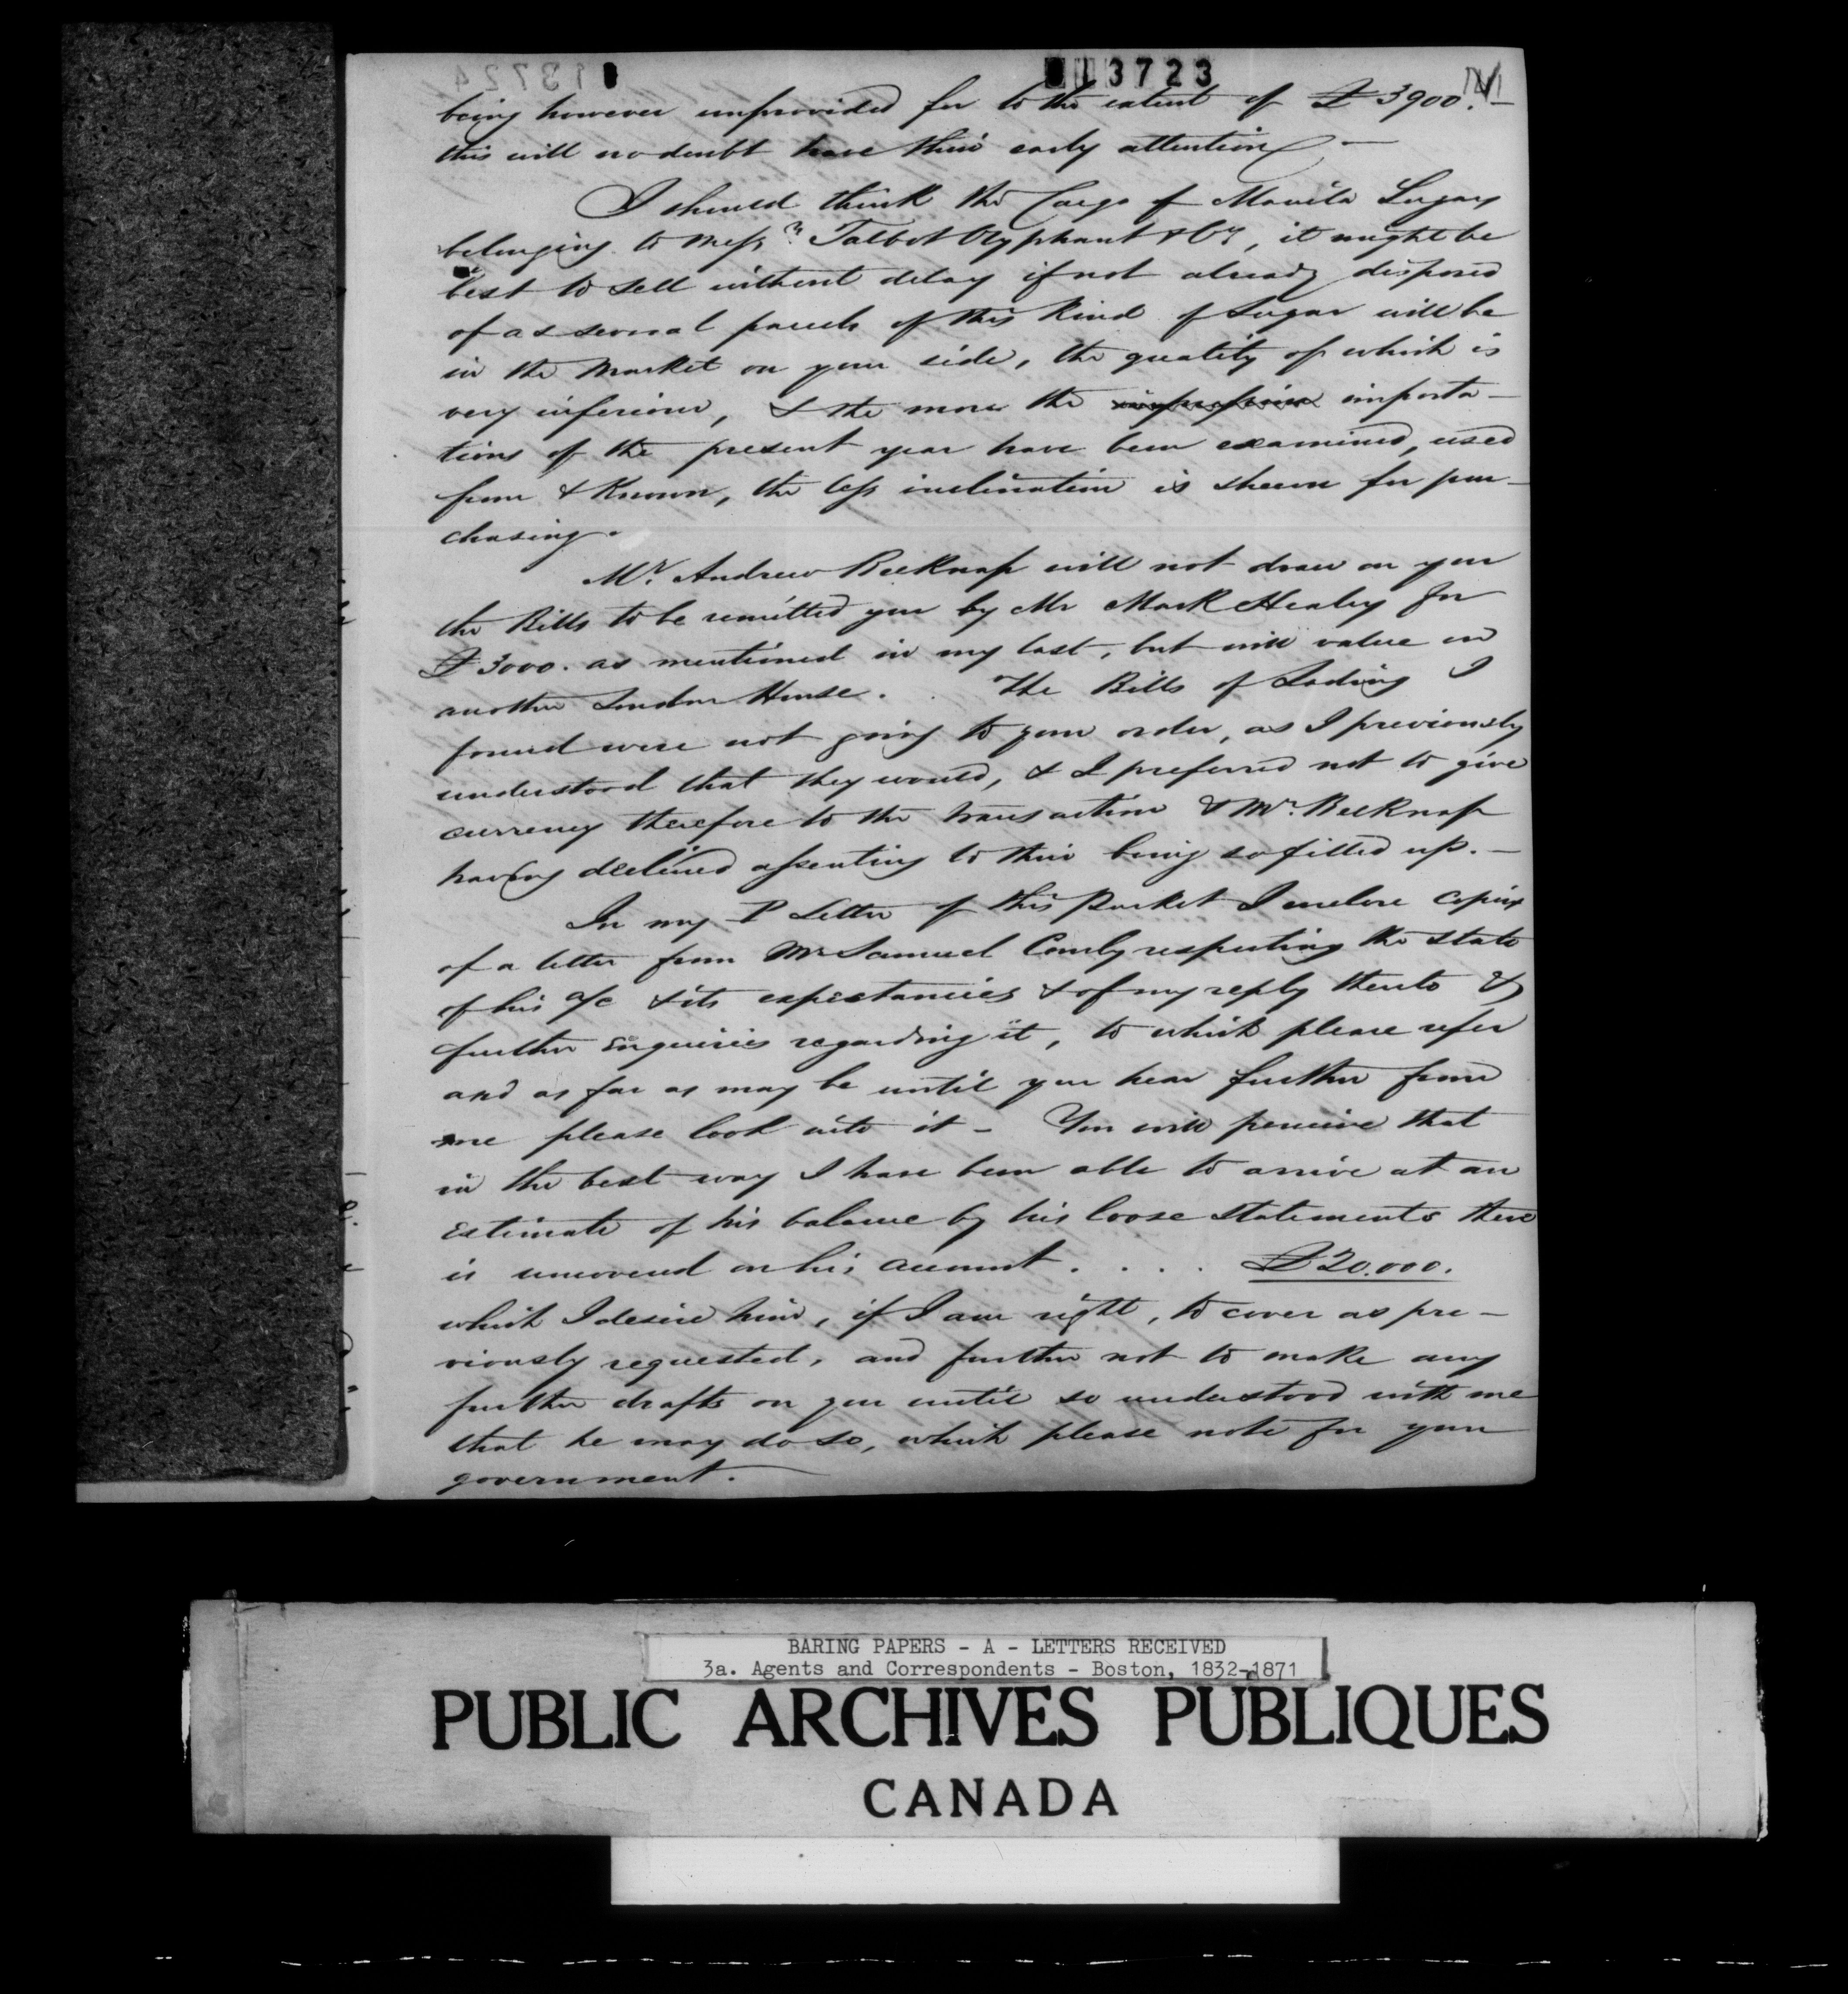 13723
being however unprovided for to the extent of £3900.-
this will no doubt have their early attention -
I should think the Cargo of Manila Sugars
belonging to Messrs Talbot Olyphant & Co, it might be
best to sell without delay if not already disposed
of as several parcels of this kind of Sugar will be
in the Market on your side, the quality of which is
very inferiour, & the more the importa-
tions of the present year have been examined, used
from & Known, the less inclination is shewn for pur-
chasing.
Mr. Andrew Belknap will not draw on you
the Bills to be remitted you by Mr Mark Healey for
£3000. as mentioned in my last, but will value on
another London House. The Bills of Lading I
found were not going to your order, as I previously
understood that they would, & I preferred not to give
currency therefore to the transaction & Mr. Belknap
having declined assenting to their being so filled up. -
In my P Letter of this Packet I enclose copies
of a letter from Mr Samuel Comly respecting the state
of his a/c & its expectancies & of my reply thereto &
further Enquiries regarding it, to which please refer
and as far as may be until you hear further from
me please look into it - You will perceive that
in the best way I have been able to arrive at an
Estimate of his balance by his loose statements there
is uncovered on his account . . . . £20.000.
which I desire him, if I am right, to cover as pre-
viously requested, and further not to make any
further drafts on you until so understood with me
that he may do so, which please note for your
government.
BARING PAPERS - A - LETTERS RECEIVED
3a. Agents and Correspondents - Boston, 1832-1871
PUBLIC ARCHIVES PUBLIQUES
CANADA